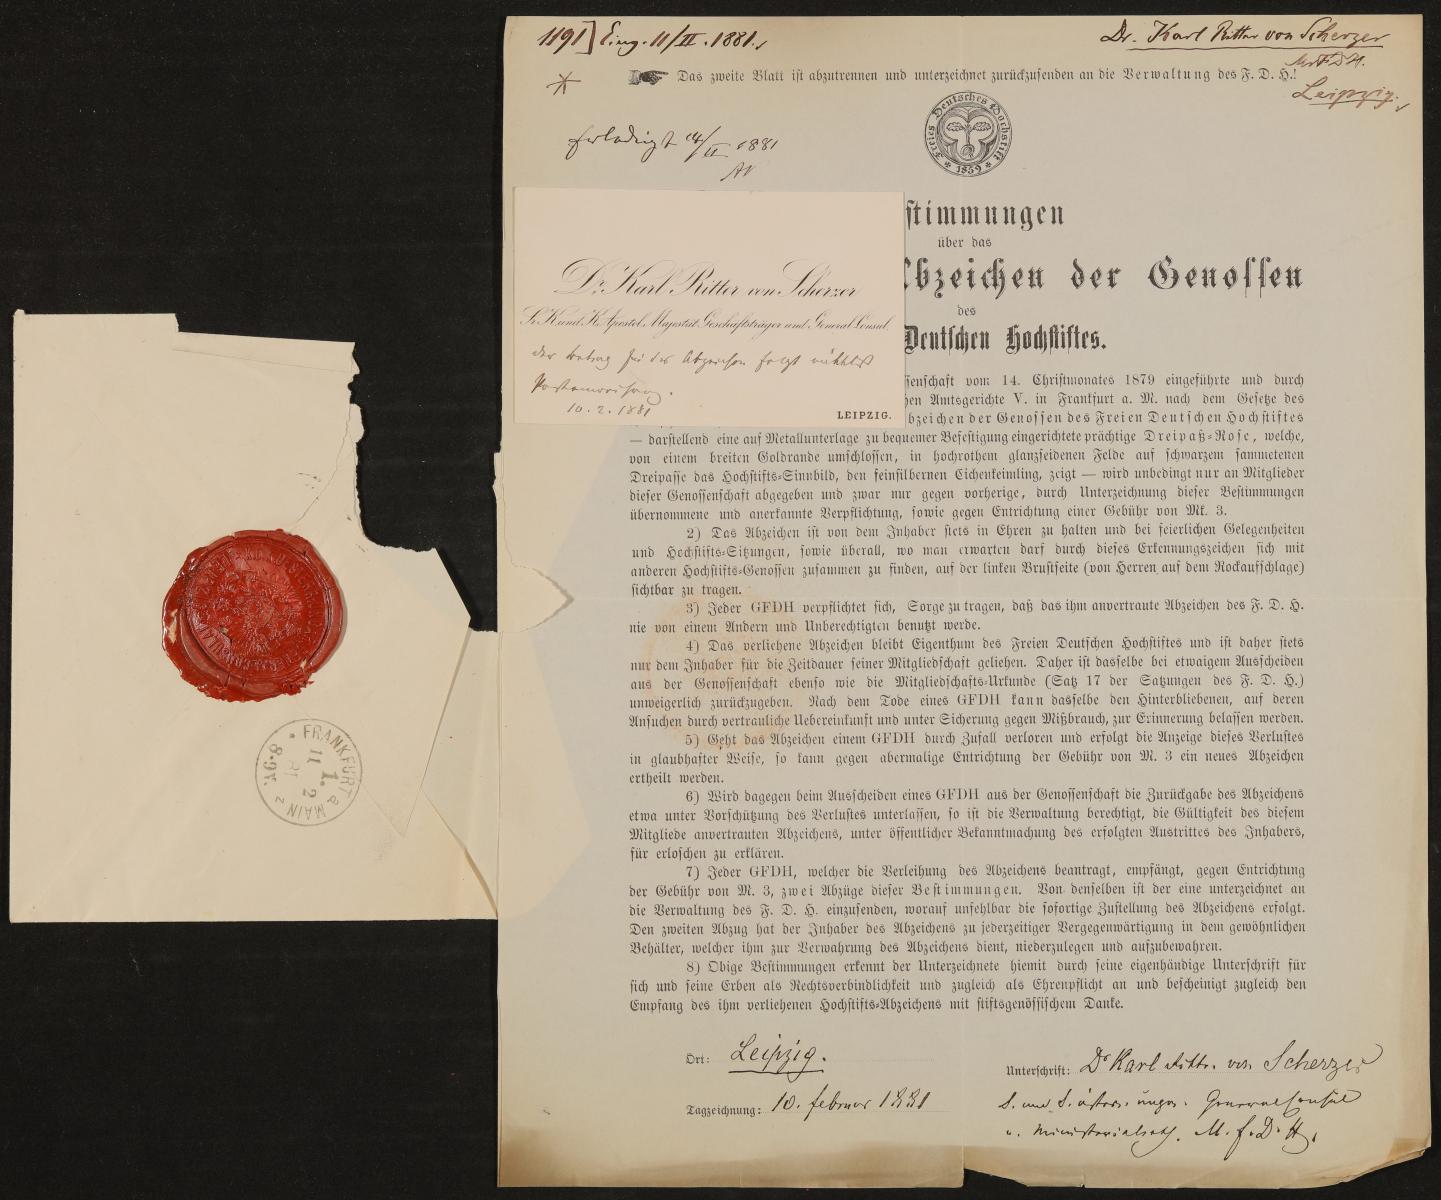 1191] Eing. 11/II. 1881.
Dr. Karl Ritter von Scherzer
MdFDH.
Leipzig.
Das zweite Blatt ist abzutrennen und unterzeichnet zurückzusenden an die Verwaltung des F. D. H.!
Freies Deutsches Hochstift
* 1859 *
Erledigt 14/II 1881
stimmungen
über das
Abzeichen der Genossen
des
Deutschen Hochstiftes.
Dr. Karl Ritter von Scherzer
Sr. K. und K. Apostol. Majestät Geschäftsträger und General-Consul.
der Betrag für das Abzeichen folgt mittelst
Postanweisung.
10.2.1881
LEIPZIG.
senschaft vom 14. Christmonates 1879 eingeführte und durch
hen Amtsgerichte V. in Frankfurt a. M. nach dem Gesetze des
bzeichen der Genossen des Freien Deutschen Hochstiftes
— darstellend eine auf Metallunterlage zu bequemer Befestigung eingerichtete prächtige Dreipaß-Rose, welche,
von einem breiten Goldrande umschlossen, in hochrothem glanzseidenen Felde auf schwarzem sammetenen
Dreipasse das Hochstifts-Sinnbild, den feinsilbernen Eichenkeimling, zeigt — wird unbedingt nur an Mitglieder
dieser Genossenschaft abgegeben und zwar nur gegen vorherige, durch Unterzeichnung dieser Bestimmungen
übernommene und anerkannte Verpflichtung, sowie gegen Entrichtung einer Gebühr von Mk. 3.
2) Das Abzeichen ist von dem Inhaber stets in Ehren zu halten und bei feierlichen Gelegenheiten
und Hochstifts-Sitzungen, sowie überall, wo man erwarten darf durch dieses Erkennungszeichen sich mit
anderen Hochstifts-Genossen zusammen zu finden, auf der linken Brustseite (von Herren auf dem Rockaufschlage)
sichtbar zu tragen.
3) Jeder GFDH verpflichtet sich, Sorge zu tragen, daß das ihm anvertraute Abzeichen des F. D. H.
nie von einem Andern und Unberechtigten benutzt werde.
4) Das verliehene Abzeichen bleibt Eigenthum des Freien Deutschen Hochstiftes und ist daher stets
nur dem Inhaber für die Zeitdauer seiner Mitgliedschaft geliehen. Daher ist dasselbe bei etwaigem Ausscheiden
aus der Genossenschaft ebenso wie die Mitgliedschafts-Urkunde (Satz 17 der Satzungen des F. D. H.)
unweigerlich zurückzugeben. Nach dem Tode eines GFDH kann dasselbe den Hinterbliebenen, auf deren
Ansuchen durch vertrauliche Uebereinkunft und unter Sicherung gegen Mißbrauch, zur Erinnerung belassen werden.
5) Geht das Abzeichen einem GFDH durch Zufall verloren und erfolgt die Anzeige dieses Verlustes
in glaubhafter Weise, so kann gegen abermalige Entrichtung der Gebühr von M. 3 ein neues Abzeichen
ertheilt werden.
6) Wird dagegen beim Ausscheiden eines GFDH aus der Genossenschaft die Zurückgabe des Abzeichens
etwa unter Vorschützung des Verlustes unterlassen, so ist die Verwaltung berechtigt, die Gültigkeit des diesem
Mitgliede anvertrauten Abzeichens, unter öffentlicher Bekanntmachung des erfolgten Austrittes des Inhabers,
für erloschen zu erklären.
7) Jeder GFDH, welcher die Verleihung des Abzeichens beantragt, empfängt, gegen Entrichtung
der Gebühr von M. 3, zwei Abzüge dieser Bestimmungen. Von denselben ist der eine unterzeichnet an
die Verwaltung des F. D. H. einzusenden, worauf unfehlbar die sofortige Zustellung des Abzeichens erfolgt.
Den zweiten Abzug hat der Inhaber des Abzeichens zu jederzeitiger Vergegenwärtigung in dem gewöhnlichen
Behälter, welcher ihm zur Verwahrung des Abzeichens dient, niederzulegen und aufzubewahren.
8) Obige Bestimmungen erkennt der Unterzeichnete hiemit durch seine eigenhändige Unterschrift für
sich und seine Erben als Rechtsverbindlichkeit und zugleich als Ehrenpflicht an und bescheinigt zugleich den
Empfang des ihm verliehenen Hochstifts-Abzeichens mit stiftsgenössischem Danke.
Ort: Leipzig.
Unterschrift: Dr Karl Rittr. von Scherzer
Tagzeichnung: 10. februar 1881
k. und k. österr. ungar. Generalconsul
u. Ministerialrath. M. f. D. H.
FRANKFURT a MAIN
1.
11 2
81
8-9V.